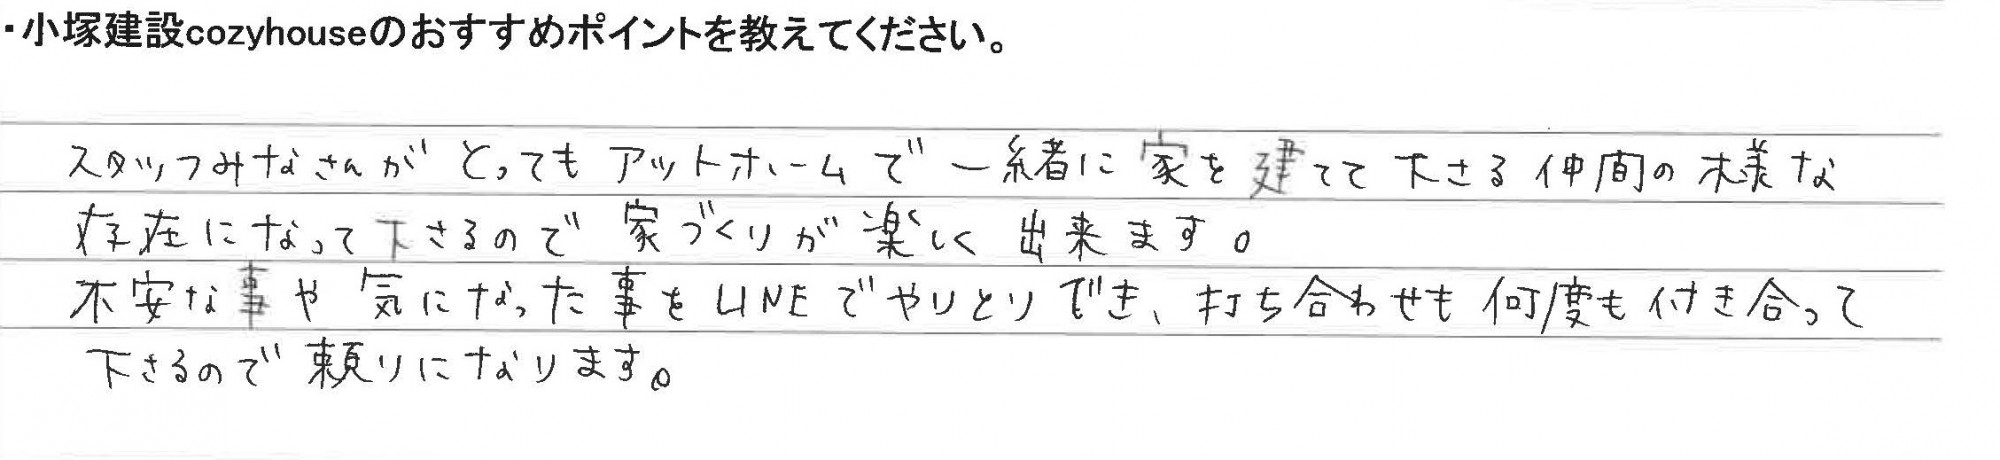 ・小塚建設cozyhouseのおすすめポイントを教えてください。
スタッフみなさんが とっても アットホームで 一緒に 家を 建てて 下さる 仲間の 様な
存在に なって 下さるので 家づくりが 楽しく 出来ます。
不安な 事や 気になった 事を LINEでやりとりでき、打ち合わせも 何度も 付き合って
下さるので 頼りになります。